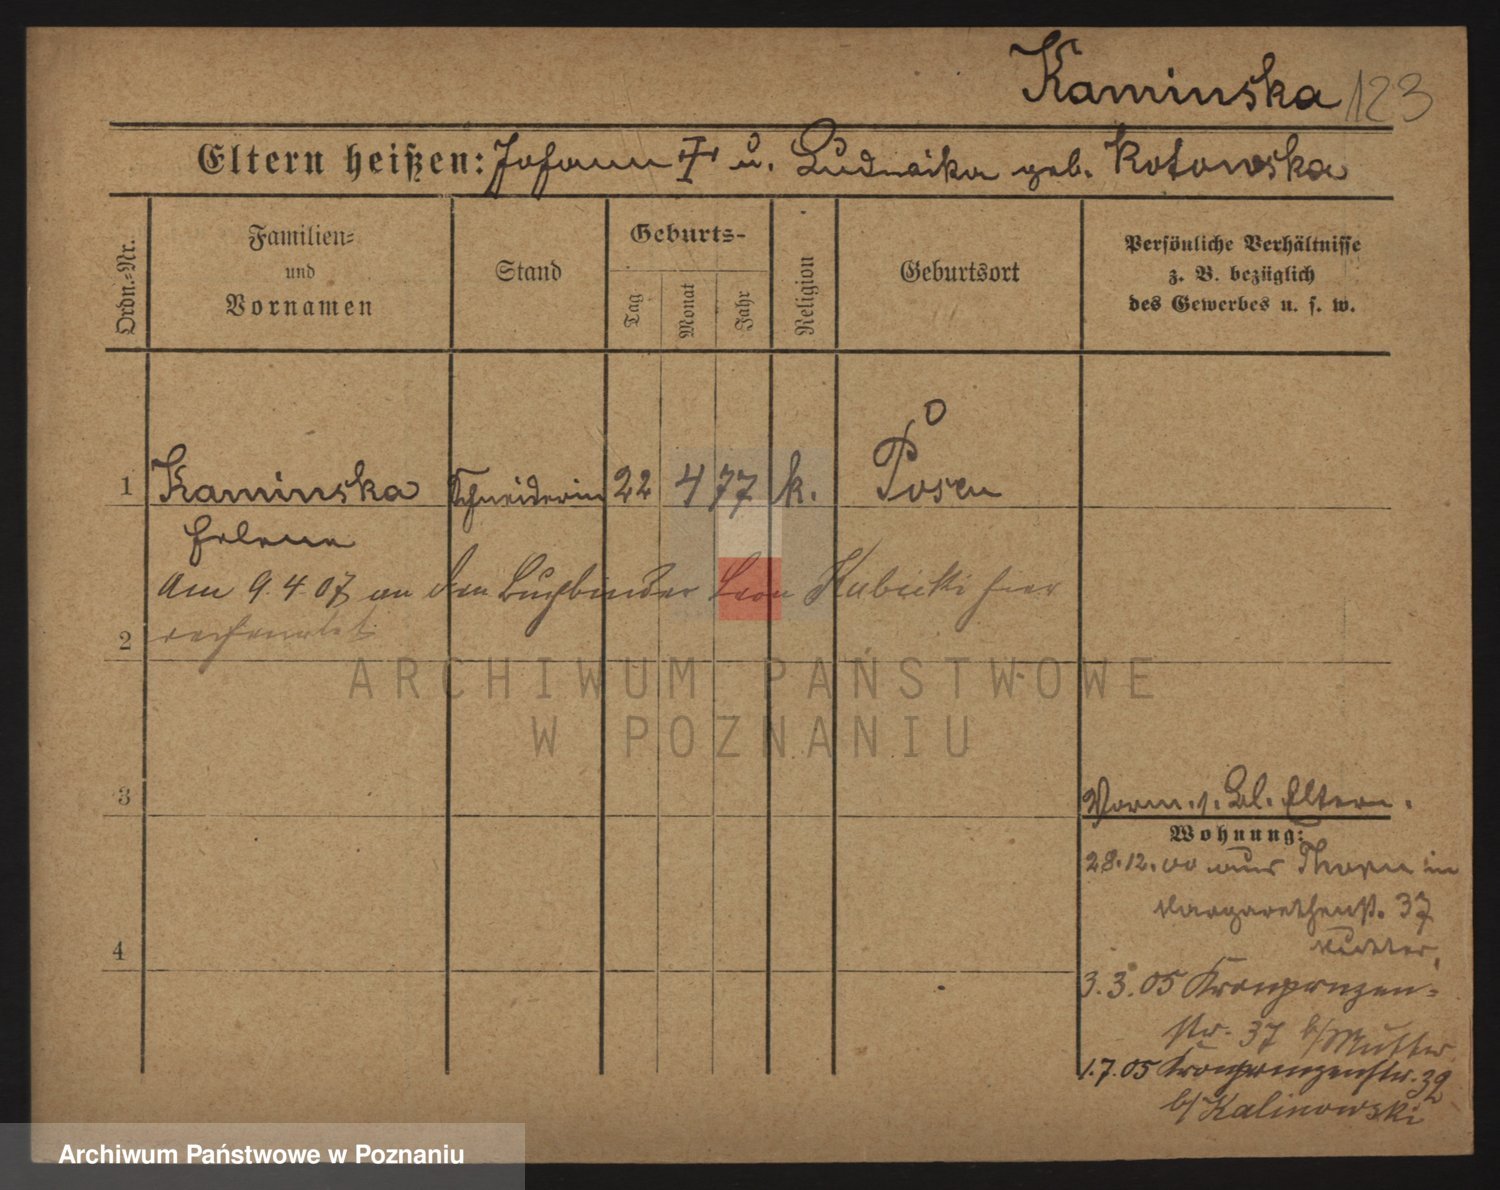 Kaminska 123
Eltern heißen: Johann † u. Ludwika geb. Kotowska
Ordn.-Nr.
Familien-
und
Vornamen
Stand
Geburts-
Tag
Monat
Jahr
Religion
Geburtsort
Persönliche Verhältnisse
z. B. bezüglich
des Gewerbes u. s. w.
1 Kaminska Schneiderin 22 4 77 k. Posen
Helene
Am 9.4.07 an den Buchbinder Leon Kubicki hier
2 verheiratet
ARCHIWUM PAŃSTWOWE
W POZNANIU
3
Vorm. s. Bl. Eltern.
Wohnung:
28.12.00 aus Thorn in
Margarethenst. 37
Mutter,
4
3.3.05 Kronprnzen-
str. 37 b/Mutter
1.7.05 Kronprinzenstr. 32
b/Kalinowski
Archiwum Państwowe w Poznaniu